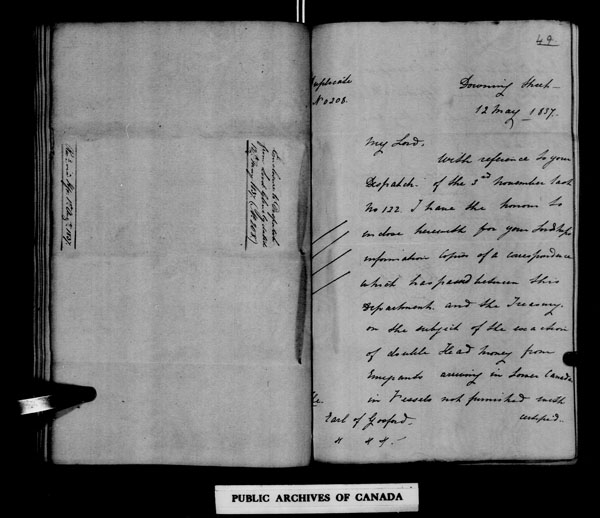 Enclosure to Despatch
from Lord Glenelg dated
12th May 1837 (No 208)
49
Duplicate
No 208.
Downing Street
12 May 1837.
My Lord,
With reference to your
Despatch of the 3rd November last
No 122 I have the honour to
inclose herewith for your Lordships
information copies of a correspondence
which has passed between this
Department and the Treasury
on the subject of the exaction
of double Head Money from
Emigrants arriving in Lower Canada
in Vessels not furnished with
certified
The
Earl of Gosford.
&c &c
PUBLIC ARCHIVES OF CANADA